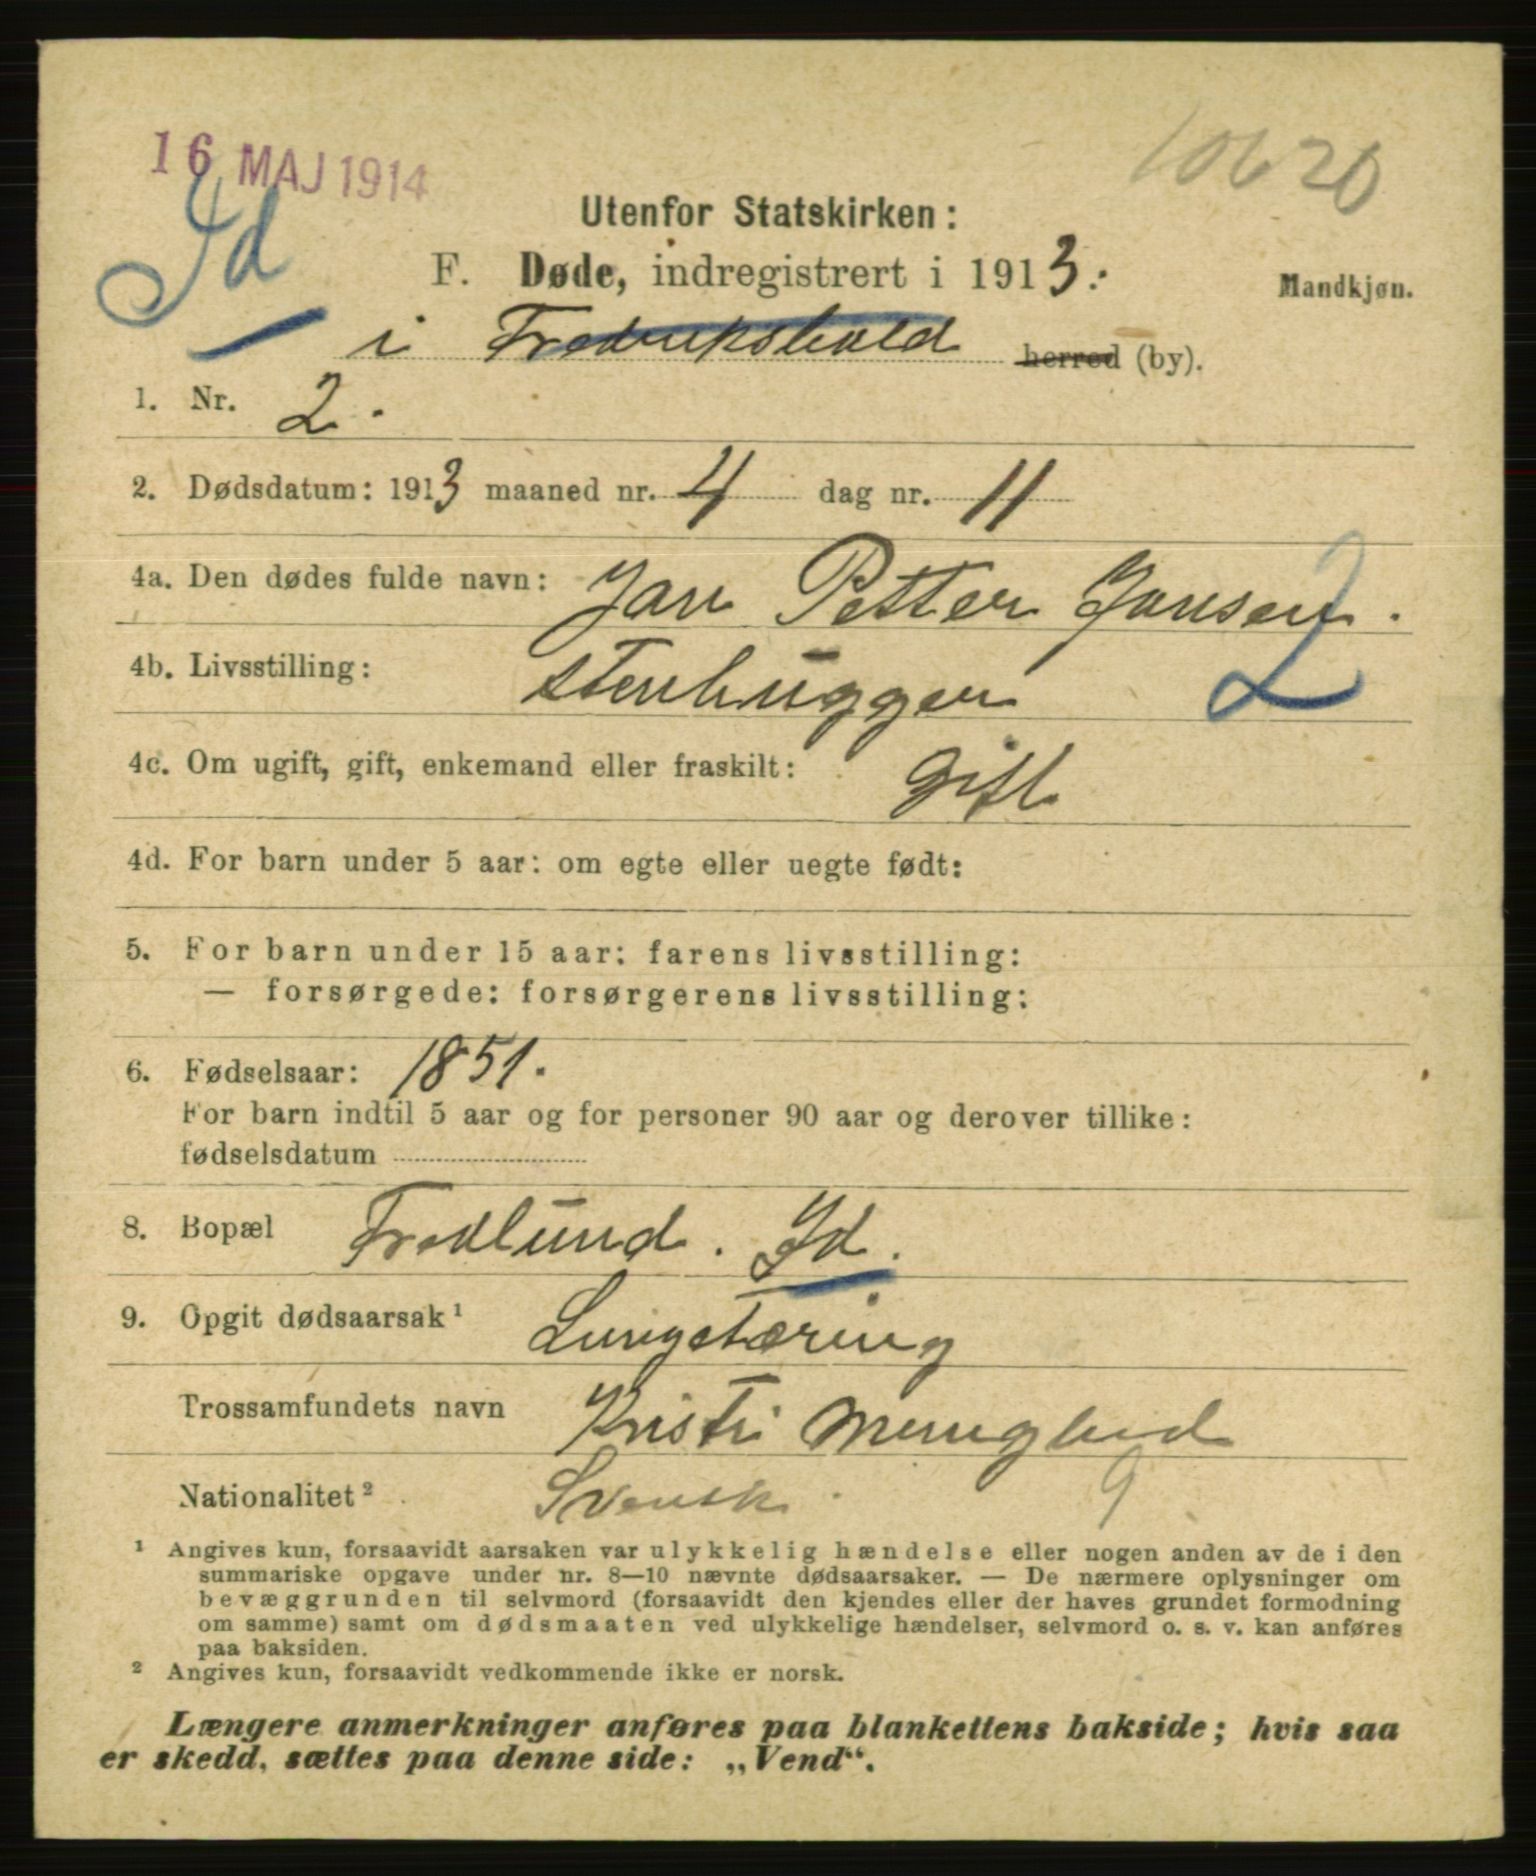 16 MAJ 1914
10620
Id
Utenfor Statskirken:
F. Døde, indregistrert i 1913.
Mandkjøn.
i Fredrikshald herred (by).
1. Nr. 2.
2. Dødsdatum: 1913 maaned nr. 4 dag nr. 11
4a. Den dødes fulde navn: Jan Petter Jansen.
4b. Livsstilling: stenhugger
2
4c. Om ugift, gift, enkemand eller fraskilt: Gift
4d. For barn under 5 aar: om egte eller uegte født:
5. For barn under 15 aar: farens livsstilling:
— forsørgede: forsørgerens livsstilling:
6. Fødselsaar: 1851.
For barn indtil 5 aar og for personer 90 aar og derover tillike:
fødselsdatum
8. Bopæl Fredlund. Id.
9. Opgit dødsaarsak¹ Lungetæring
Trossamfundets navn Kristi Menighed
Nationalitet² Svensk. 9
¹ Angives kun, forsaavidt aarsaken var ulykkelig hændelse eller nogen anden av de i den
summariske opgave under nr. 8—10 nævnte dødsaarsaker. — De nærmere oplysninger om
bevæggrunden til selvmord (forsaavidt den kjendes eller der haves grundet formodning
om samme) samt om dødsmaaten ved ulykkelige hændelser, selvmord o. s. v. kan anføres
paa baksiden.
² Angives kun, forsaavidt vedkommende ikke er norsk.
Længere anmerkninger anføres paa blankettens bakside; hvis saa
er skedd, sættes paa denne side: „Vend“.